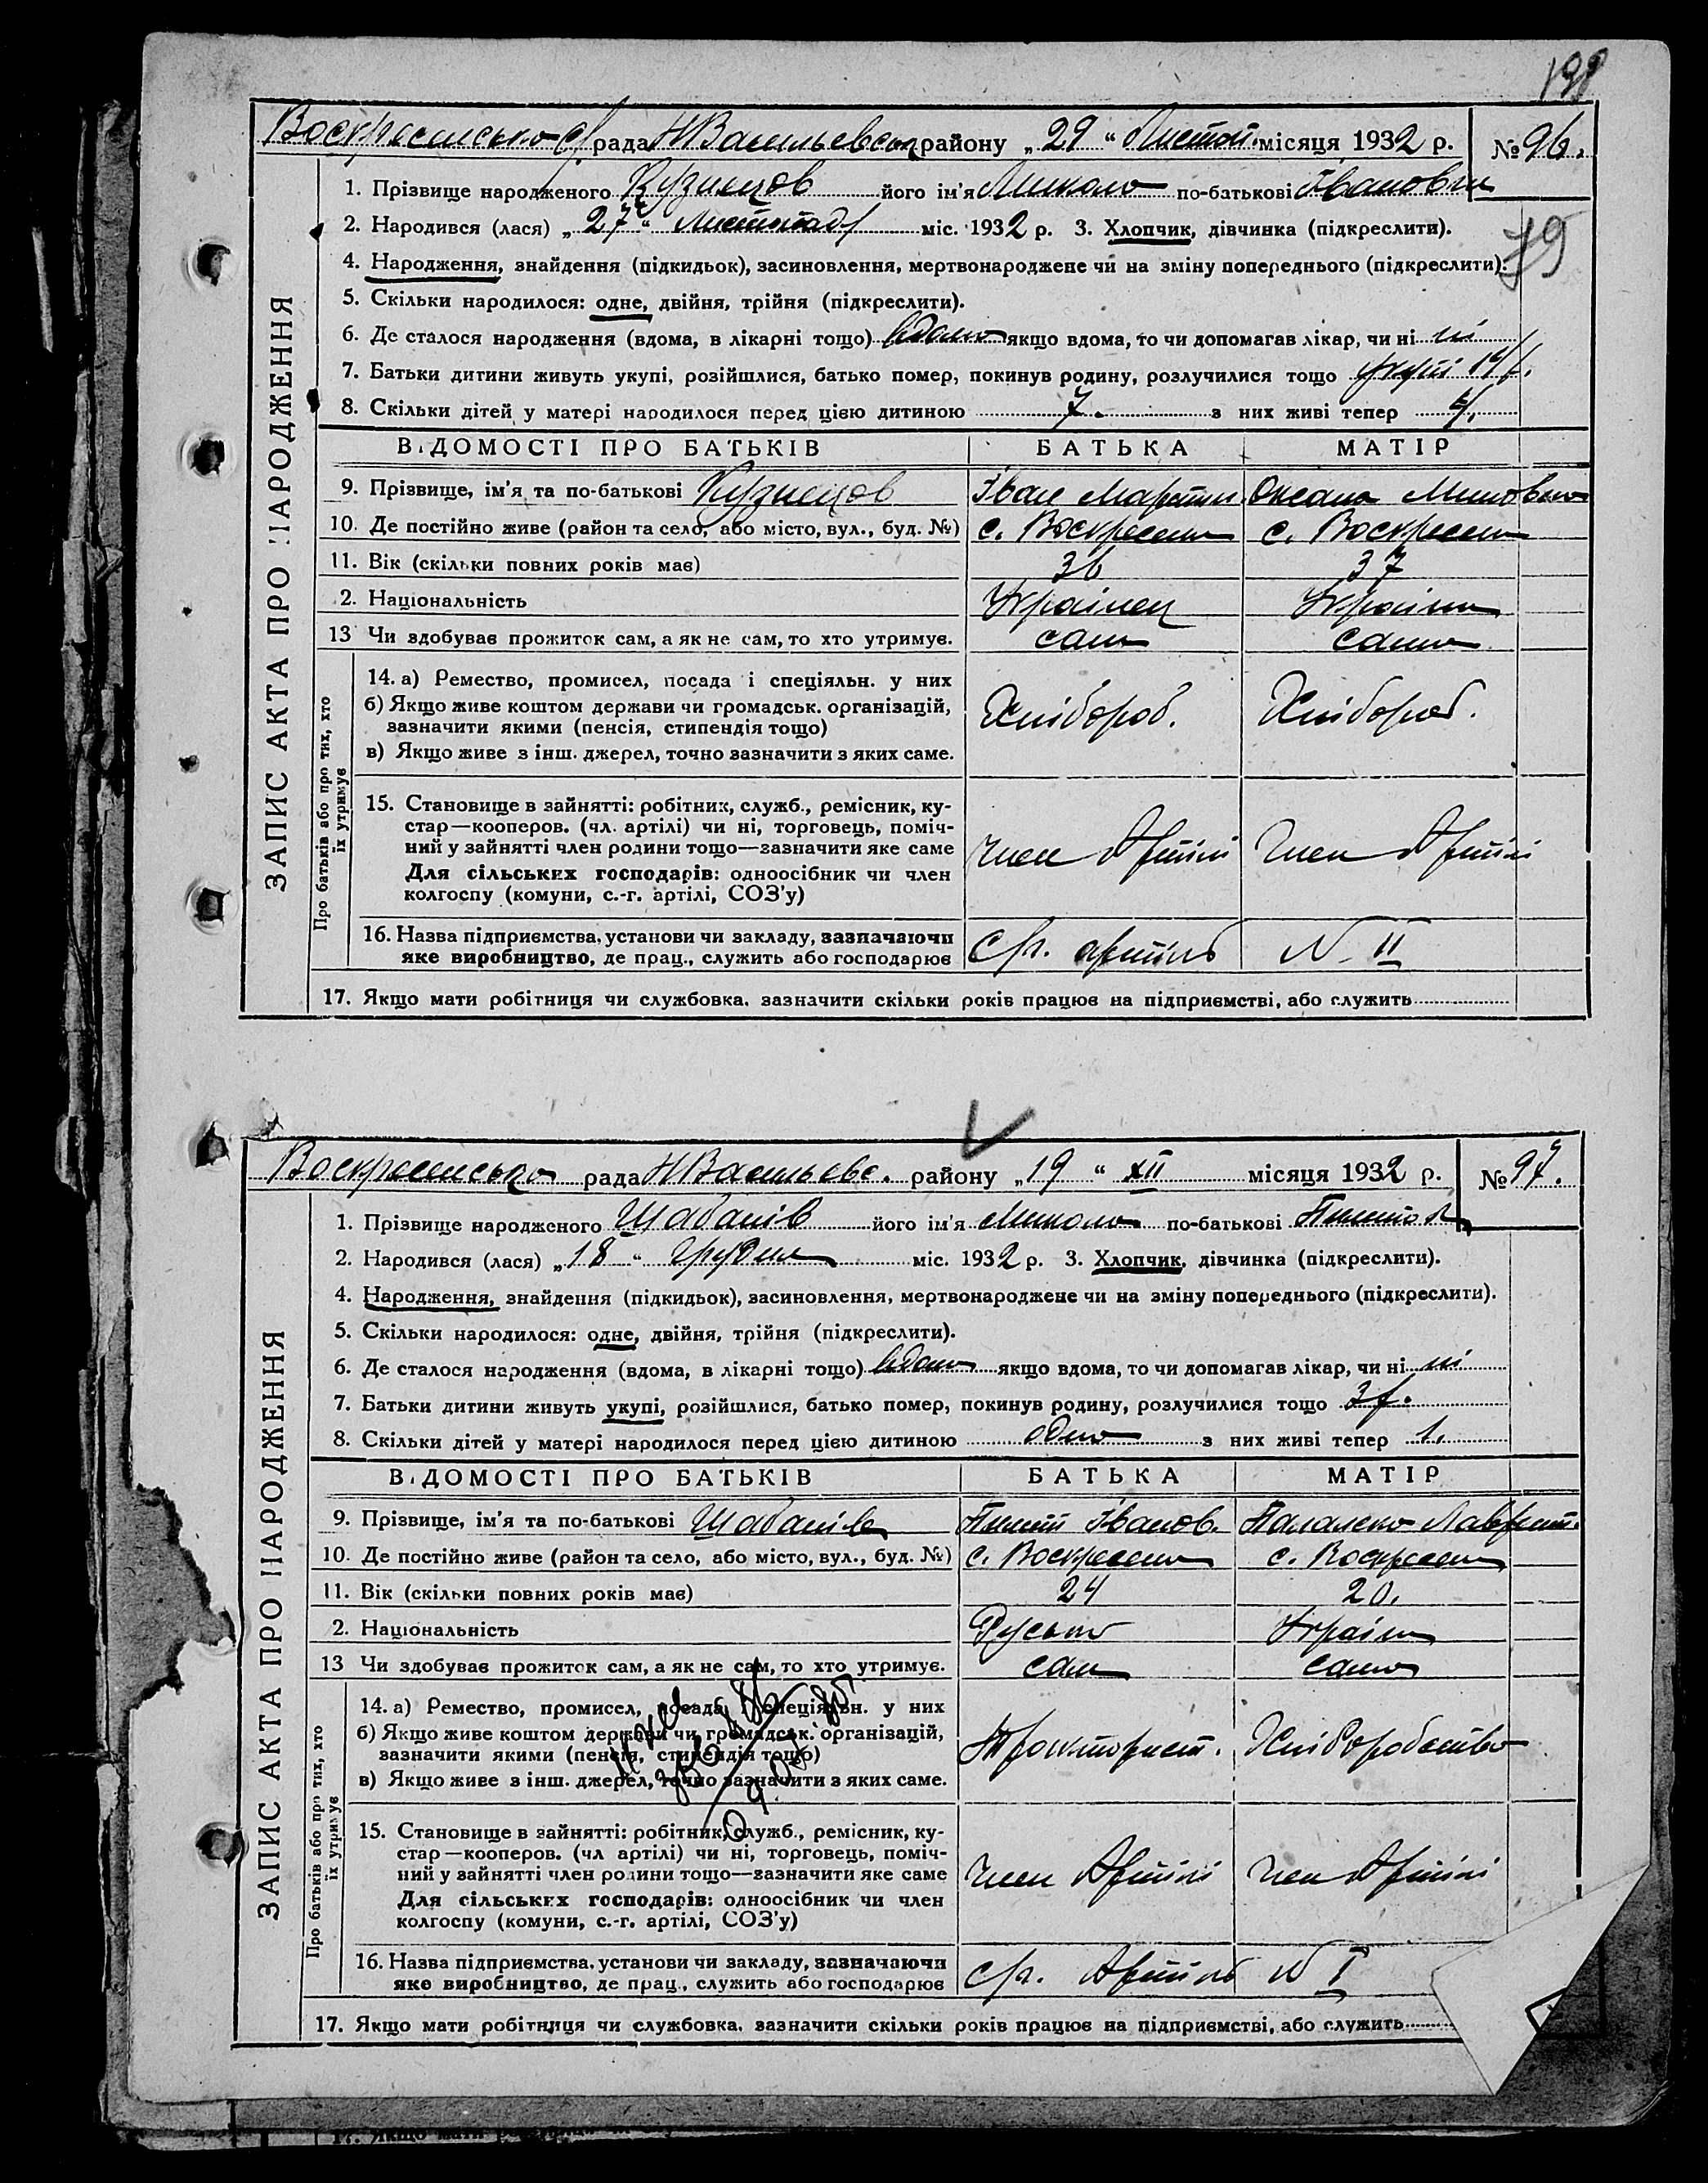 Воскресенсько рада НВасильевськ району „29“ Листоп. місяця 1932 р. № 96.
1. Прізвище народженого Кузнецов його ім'я Микола по-батькові Іванович
2. Народився (лася) „27“ Листопада міс. 1932 р. 3. Хлопчик, дівчинка (підкреслити).
79
4. Народження, знайдення (підкидьок), засиновлення, мертвонароджене чи на зміну попереднього (підкреслити).
5. Скільки народилося: одне, двійня, трійня (підкреслити).
6. Де сталося народження (вдома, в лікарні тощо) вдома якщо вдома, то чи допомагав лікар, чи ні ні
7. Батьки дитини живуть укупі, розійшлися, батько помер, покинув родину, розлучилися тощо укупі
8. Скільки дітей у матері народилося перед цією дитиною 7. з них живі тепер 4.
ЗАПИС АКТА ПРО НАРОДЖЕННЯ
ВІДОМОСТІ ПРО БАТЬКІВ БАТЬКА МАТІР
9. Прізвище, ім'я та по-батькові Кузнецов Іван Мартин. Оксана
10. Де постійно живе (район та село, або місто, вул., буд. №) с. Воскресен с. Воскресен
11. Вік (скільки повних років має) 36 37
2. Національність Українец Українка
13 Чи здобував прожиток сам, а як не сам, то хто утримує. сам сама
Про батьків або про тих, хто їх утримує
14. а) Ремество, промисел, посада і спеціяльн. у них
б) Якщо живе коштом держави чи громадськ. організацій,
зазначити якими (пенсія, стипендія тощо) Хлібороб. Хлібороб.
в) Якщо живе з інш. джерел, точно зазначити з яких саме.
15. Становище в зайнятті: робітник, служб., ремісник, ку-
стар—кооперов. (чл. артілі) чи ні, торговець, поміч-
ний у зайнятті член родини тощо—зазначити яке саме член Артілі Член Артілі
Для сільських господарів: одноосібник чи член
колгоспу (комуни, с.-г. артілі, СОЗ'у)
16. Назва підприємства, установи чи закладу, зазначаючи
яке виробництво, де прац., служить або господарює С/г. артіль N II
17. Якщо мати робітниця чи службовка, зазначити скільки років працює на підприємстві, або служить
Воскресенсько рада НВасильевс. району „19“ XII місяця 1932 р. № 97.
1. Прізвище народженого Шабанів його ім'я Микола по-батькові
2. Народився (лася) „18“ Грудня міс. 1932 р. 3. Хлопчик, дівчинка (підкреслити).
4. Народження, знайдення (підкидьок), засиновлення, мертвонароджене чи на зміну попереднього (підкреслити).
5. Скільки народилося: одне, двійня, трійня (підкреслити).
6. Де сталося народження (вдома, в лікарні тощо) вдома якщо вдома, то чи допомагав лікар, чи ні ні
7. Батьки дитини живуть укупі, розійшлися, батько помер, покинув родину, розлучилися тощо 3 р.
8. Скільки дітей у матері народилося перед цією дитиною одно з них живі тепер 1.
ЗАПИС АКТА ПРО НАРОДЖЕННЯ
ВІДОМОСТІ ПРО БАТЬКІВ БАТЬКА МАТІР
9. Прізвище, ім'я та по-батькові Шабанів Пилип Іванов. Палажка Лаврент.
10. Де постійно живе (район та село, або місто, вул., буд. №) с. Воскресен с. Воскресен
11. Вік (скільки повних років має) 24 20.
2. Національність Українка
13 Чи здобував прожиток сам, а як не сам, то хто утримує. сам сама
Про батьків або про тих, хто їх утримує
14. а) Ремество, промисел, посада і спеціяльн. у них
б) Якщо живе коштом держави чи громадськ. організацій,
зазначити якими (пенсія, стипендія тощо) Тракторист. Хліборобство
в) Якщо живе з інш. джерел, точно зазначити з яких саме.
15. Становище в зайнятті: робітник, служб., ремісник, ку-
стар—кооперов. (чл артілі) чи ні, торговець, поміч-
ний у зайнятті член родини тощо—зазначити яке саме член Артілі член Артілі
Для сільських господарів: одноосібник чи член
колгоспу (комуни, с.-г. артілі, СОЗ'у)
16. Назва підприємства, установи чи закладу, зазначаючи
яке виробництво, де прац., служить або господарює с/г. Артіль N I
17. Якщо мати робітниця чи службовка, зазначити скільки років працює на підприємстві, або служить